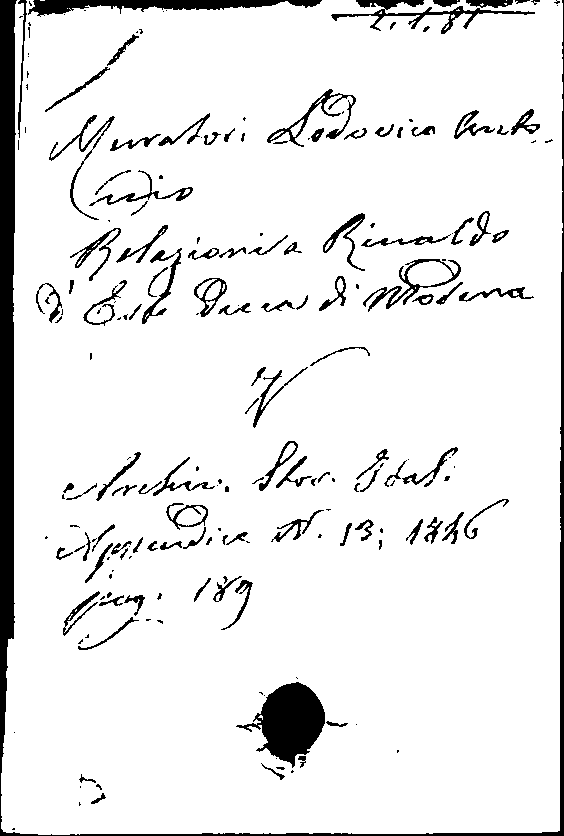 2.1.81
Muratori Lodovico Anto-
nio
Relazioni a Rinaldo
d'Este Duca di Modena
V
Archiv. Stor. Ital.
Appendice N. 13; 1846
pag. 189